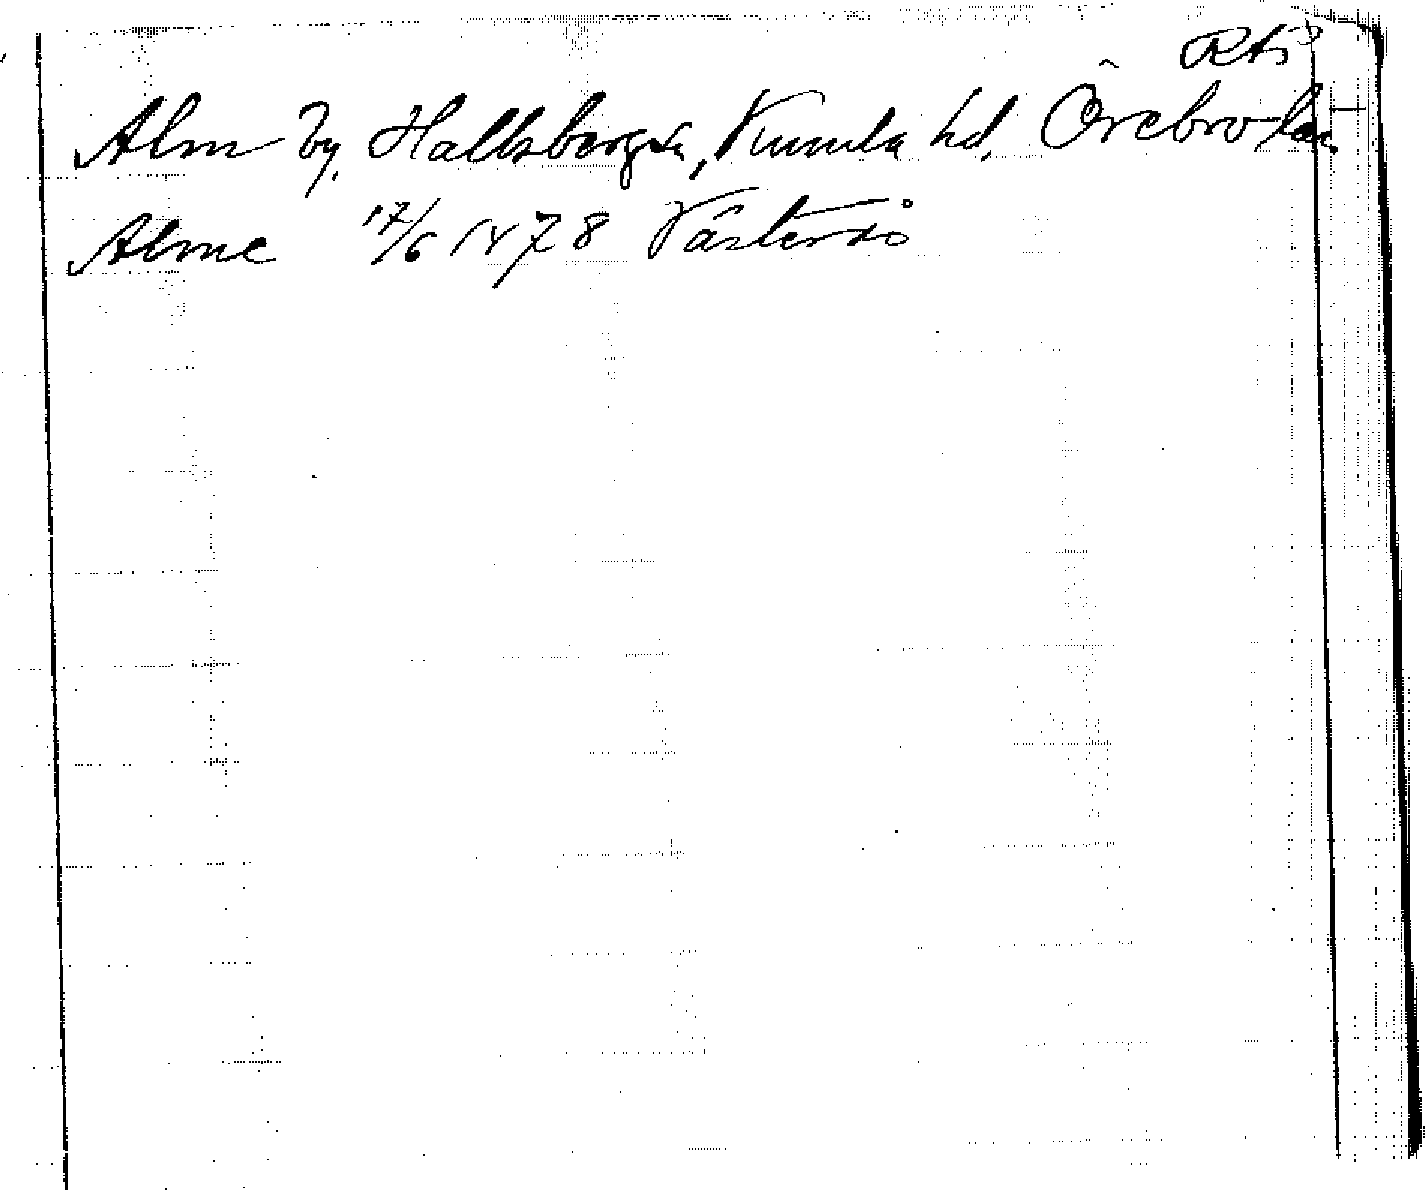 Alm by, Hallsbergs sn, Kumla hd. Örebro län
Alme 17/6 1478 Västerås